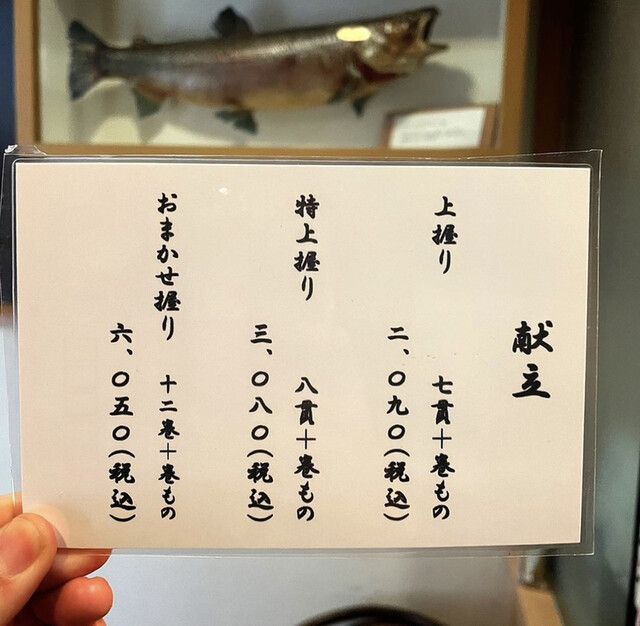 献立
上握り
七貫＋巻もの
二、〇九〇(税込)
特上握り
八貫＋巻もの
三、〇八〇(税込)
おまかせ握り
十二巻＋巻もの
六、〇五〇(税込)